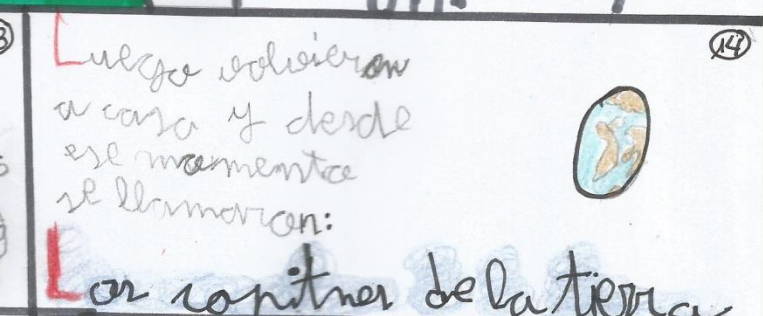 14
Luego volvieron
a casa y desde
ese momento
se llamaron:
Los capitnes de la tierra